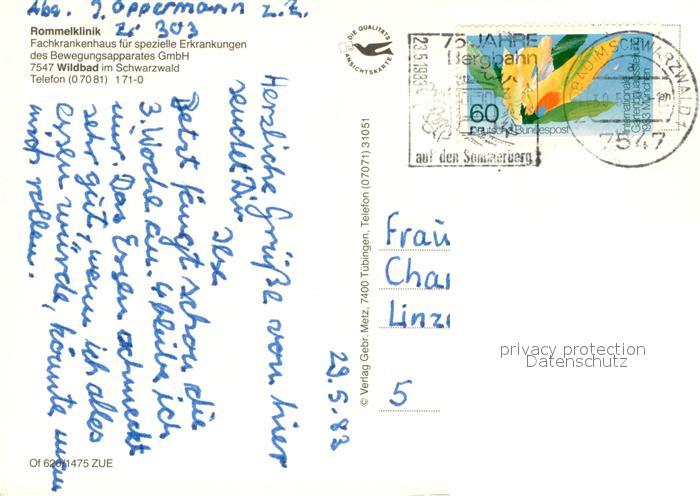 Abs. I. Oppermann z. Z.
Zi 303
Rommelklinik
Fachkrankenhaus für spezielle Erkrankungen
des Bewegungsapparates GmbH
7547 Wildbad im Schwarzwald
Telefon (07081) 171-0
29.5.83
Herzliche Grüße von hier
sendet Dir
Ilse
Jetzt fängt schon die
3. Woche an. 4 bleibe ich
nur. Das Essen schmeckt
sehr gut, wenn ich alles
essen würde, könnte man
mich rollen.
Of 620/1475 ZUE
© Verlag Gebr. Metz, 7400 Tübingen, Telefon (07071) 31051
DIE QUALITÄTS
ANSICHTSKARTE
75 JAHRE
Bergbahn
auf den Sommerberg
60
Deutsche Bundespost
Internationale
Gartenbauausstellung
1983 München
7547
Frau
Char
Linz
5
privacy protection
Datenschutz